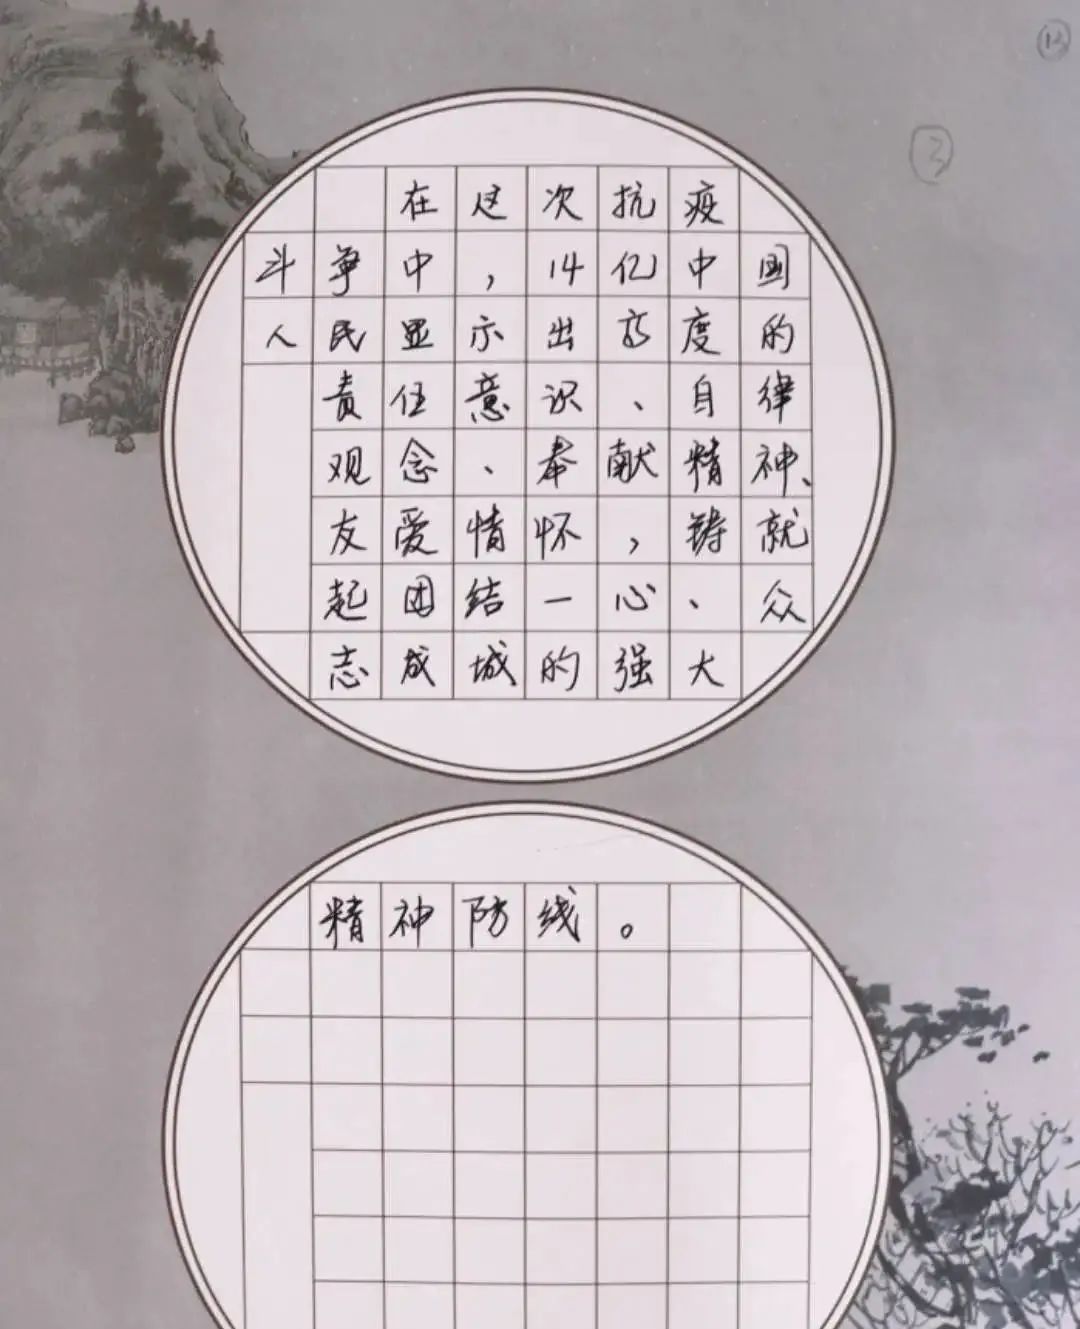 在这次抗疫
斗争中，14亿中国
人民显示出高度的
责任意识、自律
观念、奉献精神、
友爱情怀，铸就
起团结一心、众
志成城的强大
精神防线。
③